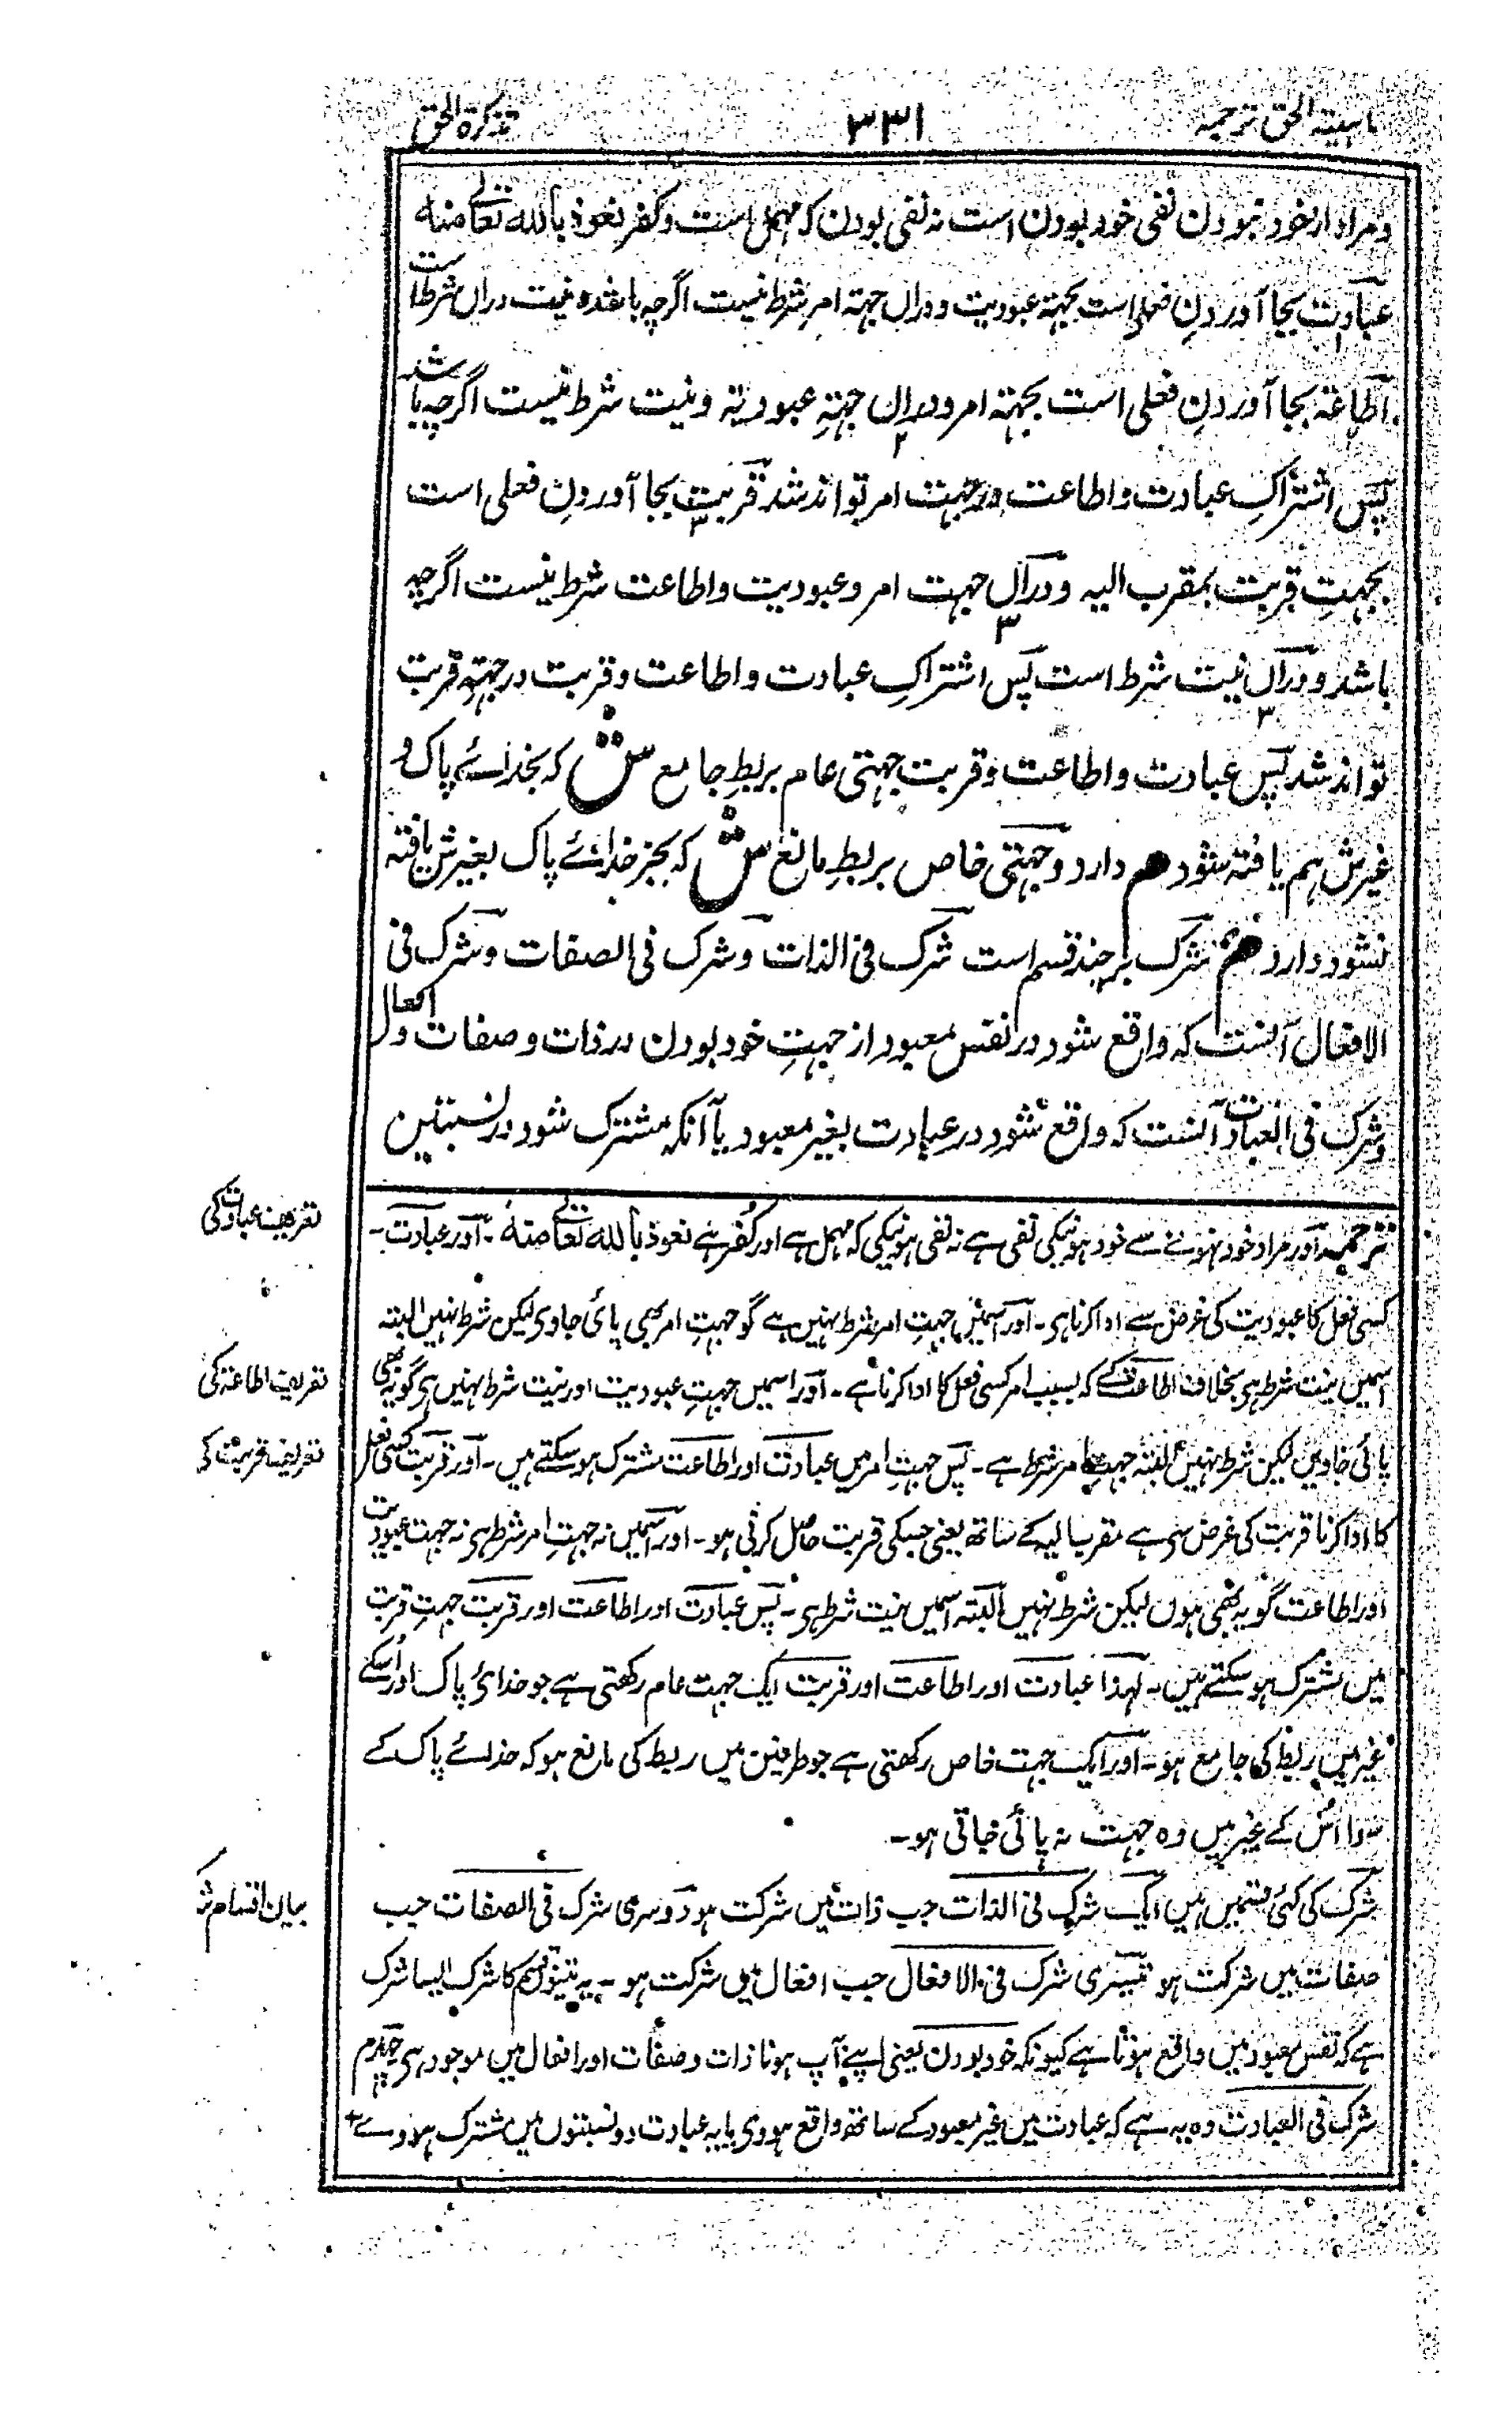 ماہیتہ الحق ترجمہ ۳۳۱ تذکرۃ الحق
و مراد از خود نبودن نفی خود بودن است نہ نفی بودن کہ مہمل است و کفر نعوذ باللہ تعالیٰ منہ
عبادت بجا آوردنِ فعلی است بجہتہ عبودیت و دراں جہتہ امر شرط نیست اگرچہ باشد و نیت دراں شرط است
اطاعۃ بجا آوردنِ فعلی است بجہتہ امر و دراں جہتہِ عبودیۃ و نیت شرط نیست اگرچہ باشد
پس اشتراکِ عبادت و اطاعت در جہت امر تواند شد قربت بجا آوردنِ فعلی است
بجہتِ قربت بمقرب الیہ و دراں جہت امر و عبودیت و اطاعت شرط نیست اگرچہ
باشد و دراں نیت شرط است پس اشتراکِ عبادت و اطاعت و قربت در جہتہِ قربت
تواند شد پس عبادت و اطاعت و قربت جہتی عام بربطِ جامع ش کہ بخدائے پاک و
غیرش ہم یافتہ شود هم دارد و جہتی خاص بربطِ مانع ش کہ بجز خدائے پاک بغیرش یافتہ
نشود دارد هم شرک بر چند قسم است شرک فی الذات و شرک فی الصفات و شرک فی
الافعال آنست کہ واقع شود در نفس معبود از جہتِ خود بودن در ذات و صفات و افعال
و شرک فی العبادت آنست کہ واقع شود در عبادت بغیر معبود یا آنکہ مشترک شود در نسبتین
ترجمہ اور مراد خود نہونے سے خود ہونیکی نفی ہے نہ نفی ہونیکی کہ مہمل ہے اور کُفر ہے نعوذ باللہ تعالیٰ منہ ۔ اور عبادت ۔
تعریف عبادت کی
کسی فعل کا عبودیت کی غرض سے ادا کرنا ہی ۔ اور اسمیں جہتِ امر شرط نہیں ہے گو جہتِ امر بھی پائی جاوی لیکن شرط نہیں البتہ
اسمیں نیت شرط ہی بخلاف اطاعت کے کہ بسبب امر کسی فعل کا ادا کرنا ہے ۔ اور اسمیں جہتِ عبودیت اور نیت شرط نہیں ہی گو یہ بھی
تعریف اطاعۃ کی
پائی جاویں لیکن شرط نہیں البتہ جہتِ امر شرط ہے ۔ پس جہتِ امر میں عبادت اور اطاعت مشترک ہو سکتے ہیں ۔ اور قربت کسی فعل
تعریف قربت کی
کا ادا کرنا قربت کی غرض سے ہے مقرب الیہ کے ساتھ یعنی جسکی قربت حاصل کرنی ہو ۔ اور اسمیں نہ جہتِ امر شرط ہی نہ جہت عبودیت
اور اطاعت گو یہ بھی ہوں لیکن شرط نہیں البتہ اسمیں نیت شرط ہی ۔ پس عبادت اور اطاعت اور قربت جہتِ قربت
میں مشترک ہو سکتے ہیں ۔ لہذا عبادت اور اطاعت اور قربت ایک جہت عام رکھتی ہے جو خدائ پاک اور اُسکے
غیر میں ربط کی جامع ہو ۔ اور ایک جہت خاص رکھتی ہے جو طرفین میں ربط کی مانع ہو کہ خدائے پاک کے
سوا اُس کے غیر میں وہ جہت نہ پائی جاتی ہو ۔
شرک کی کئی قسمیں ہیں ایک شرک فی الذات جب ذات میں شرکت ہو دوسری شرک فی الصفات جب
بیان اقسام
صفات میں شرکت ہو تیسری شرک فی الافعال جب افعال میں شرکت ہو ۔ یہ تینوں قسم کا شرک ایسا شرک
ہے کہ نفس معبود میں واقع ہوتا ہے کیونکہ خود بودن یعنی اپنے آپ ہونا ذات و صفات اور افعال میں موجود ہی چہارم
شرک فی العبادت وہ یہ ہے کہ عبادت میں غیر معبود کے ساتھ واقع ہووی یا یہ عبادت دو نسبتوں میں مشترک ہووے